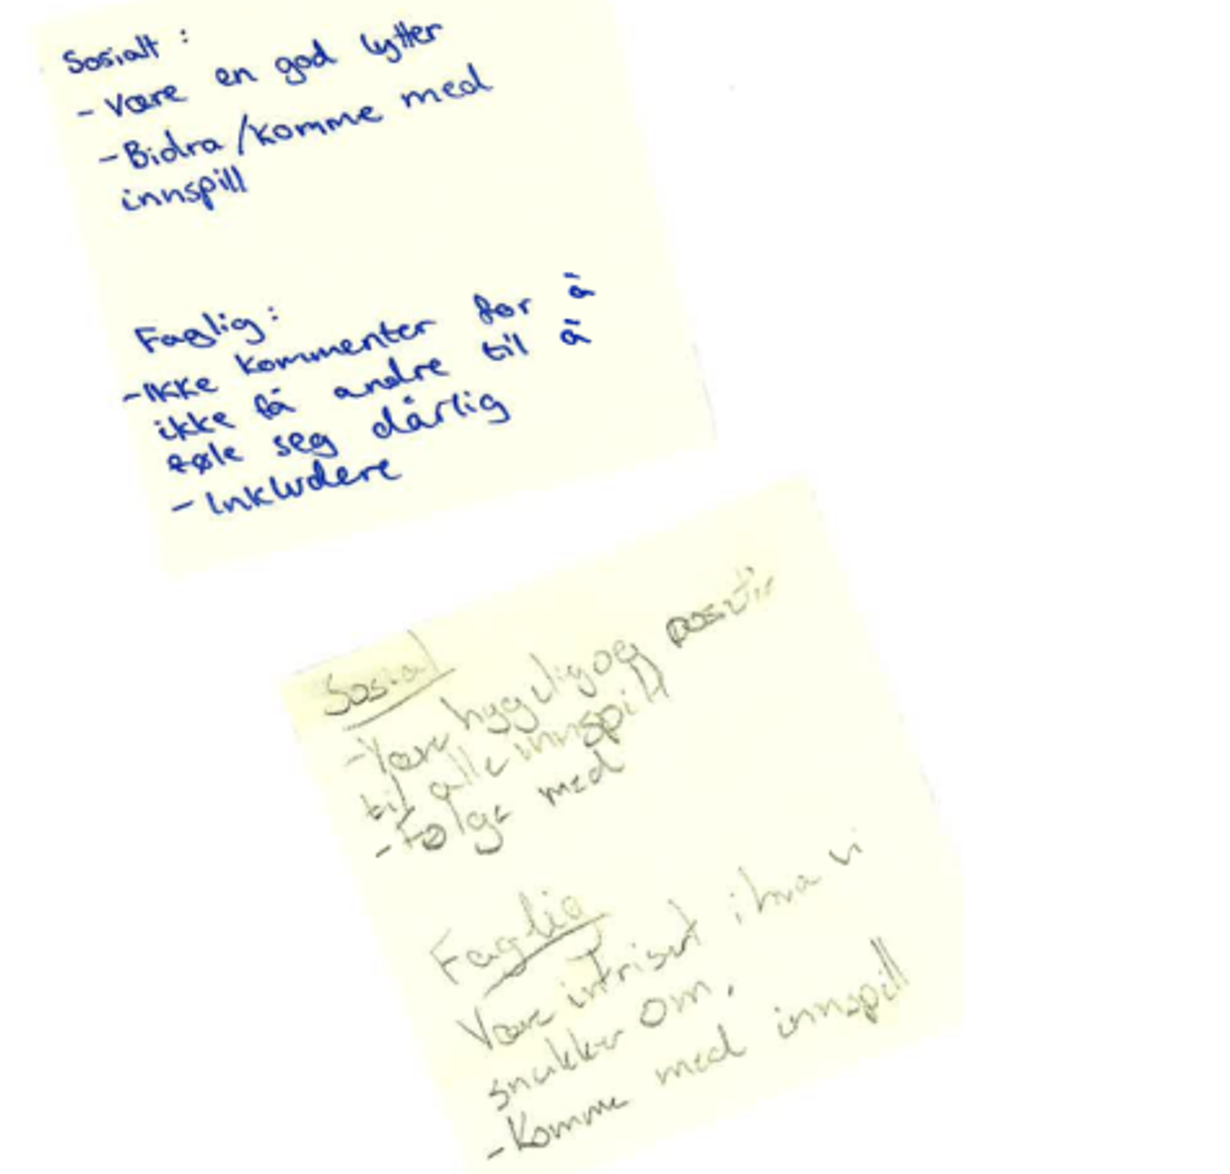 Sosialt :
- Være en god lytter
- Bidra/komme med
innspill
Faglig:
- Ikke kommenter for å
ikke få andre til å
føle seg dårlig
- Inkludere
Sosial
- Være hyggelig og positiv
til alle innspill
- Følge med
Faglig
Være intrisert i hva vi
snakker om.
- Komme med innspill